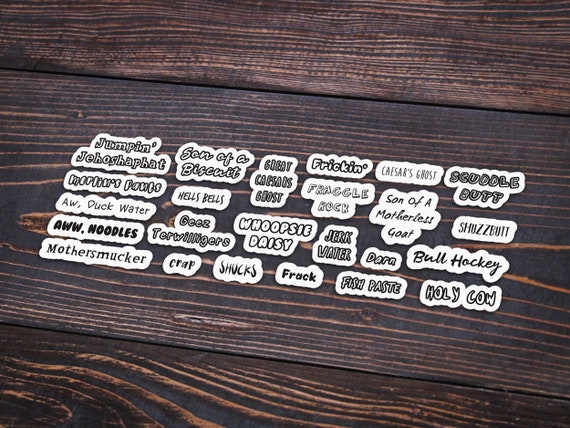 Jumpin'
Jehoshaphat
Son of a
Biscuit
GREAT
CAESARS
GHOST
Frickin'
CAESAR'S GHOST
SCUDDLE
BUTT
Merlin's Pants
HELLS BELLS
FRAGGLE
ROCK
Son of A
Motherless
Goat
SHUZZBUTT
Aw, Duck Water
AWW, NOODLES
Geez
Terwilligers
WHOOPSIE
DAISY
JERK
WATER
Darn
Bull Hockey
Mothersmucker
crap
SHUCKS
Frack
FISH PASTE
HOLY COW